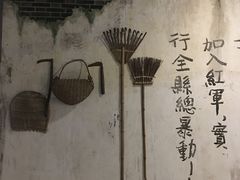 加入紅軍,實
行全縣總暴動!